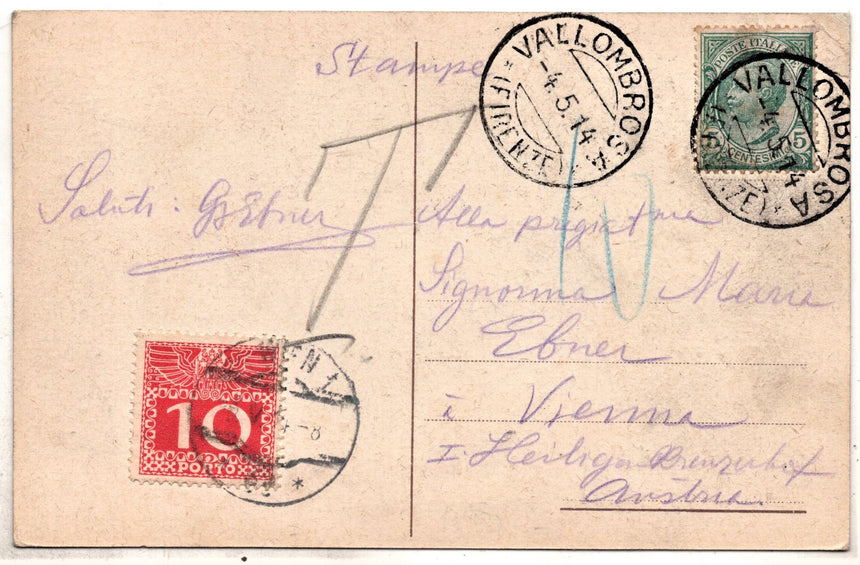 Stampe
VALLOMBROSA
-4.5.14
(FIRENZE)
POSTE ITALIANE
5
CENTESIMI
VALLOMBROSA
Saluti. GEbner
T
10
Alla pregiatma
Signorina Maria
Ebner
à
Vienna
I. Heiligenkreuzerhof
Austria
10
PORTO
WIEN 1
-8